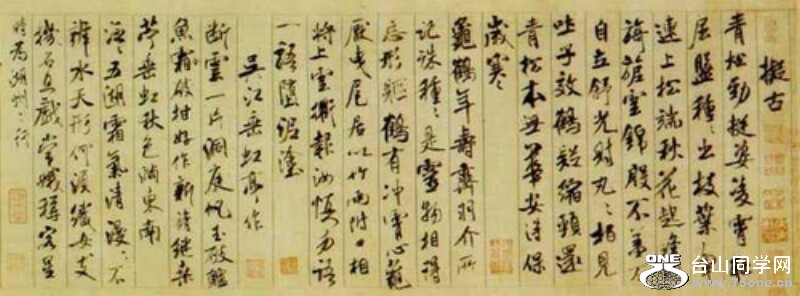 擬古
青松勁挺姿凌霄
屈盤種々出枝葉
連上松端秋花起絳
旖旎雲錦殷不羞不
自立舒光射丸々柏見
吐子效鶴疑縮頸還
青松本無華安得保
歲寒
龜鶴年壽齊羽介所
託殊種々是靈物相得
忘形軀鶴有沖霄心龜
厭曳尾居以竹兩附口相
將上雲衢報汝慎勿語
一語墮泥塗
吳江垂虹亭作
斷雲一片洞庭帆玉破鱸
魚霜破柑好作新詩繼桑
苧垂虹秋色滿東南
泛々五湖霜氣清漫々不
辨水天形何須織女支
機石且戲常娥稱客星
時為湖州之行
ONE
台山同学网
www.75one.cn